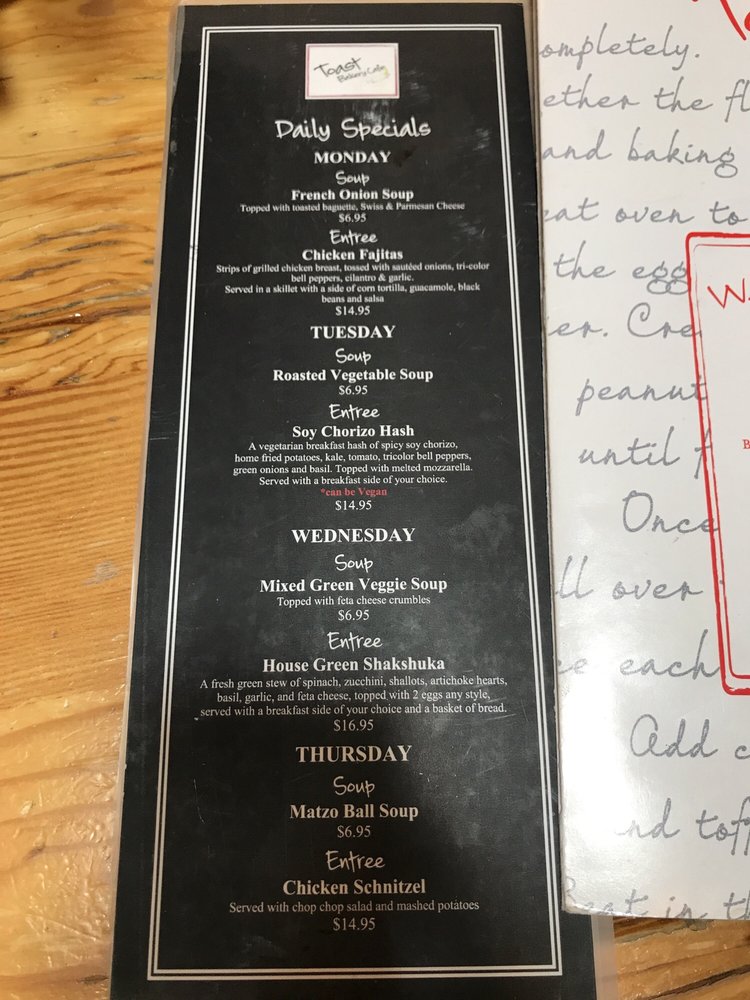 Toast
Bakery Cafe
Daily Specials
MONDAY
Soup
French Onion Soup
Topped with toasted baguette, Swiss & Parmesan Cheese
$6.95
Entree
Chicken Fajitas
Strips of grilled chicken breast, tossed with sautéed onions, tri-color
bell peppers, cilantro & garlic.
Served in a skillet with a side of corn tortilla, guacamole, black
beans and salsa
$14.95
TUESDAY
Soup
Roasted Vegetable Soup
$6.95
Entree
Soy Chorizo Hash
A vegetarian breakfast hash of spicy soy chorizo,
home fried potatoes, kale, tomato, tricolor bell peppers,
green onions and basil. Topped with melted mozzarella.
Served with a breakfast side of your choice.
*can be Vegan
$14.95
WEDNESDAY
Soup
Mixed Green Veggie Soup
Topped with feta cheese crumbles
$6.95
Entree
House Green Shakshuka
A fresh green stew of spinach, zucchini, shallots, artichoke hearts,
basil, garlic, and feta cheese, topped with 2 eggs any style,
served with a breakfast side of your choice and a basket of bread.
$16.95
THURSDAY
Soup
Matzo Ball Soup
$6.95
Entree
Chicken Schnitzel
Served with chop chop salad and mashed potatoes
$14.95
ompletely.
ether the fl
and baking
eat oven to
the egg
er. Cre
peanut
until f
Once
ll over
each
Add c
nd toff
Beat in th